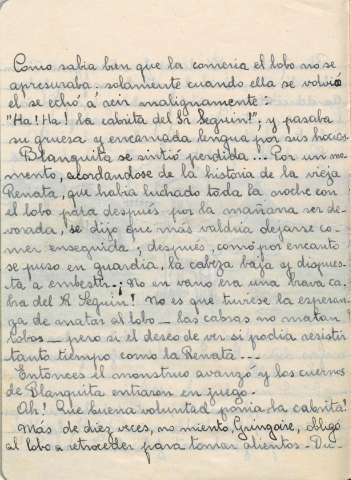 Como sabia bien que la comeria el lobo no se
apresuraba. solamente cuando ella se volvió
el se echó á reir malignamente:
"Ha! Ha! la cabrita del Sr Seguin!"; y pasaba
su gruesa y encarnada lengua por sus hocicos
Blanquita se sintió perdida... Por un mo-
mento, acordandose de la historia de la vieja
Renata, que habia luchado toda la noche con
el lobo para después por la mañana ser de-
vorada, se dijo que mas valdria dejarse co-
mer enseguida; después, como por encanto
se puso en guardia, la cabeza baja y dispues-
ta á embestir. ¡No en vano era una brava ca-
bra del Sr Seguin! No es que tuviese la esperan-
za de matar al lobo — las cabras no matan
lobos — pero si el deseo de ver si podia resistir
tanto tiempo como la Renata ---
Entonces el monstruo avanzó y los cuernos
de Blanquita entraron en juego.
Ah! Que buena voluntad ponia la cabrita!
Más de diez veces, no miento, Gringoire, obligó
al lobo a retroceder para tomar alientos - Du-